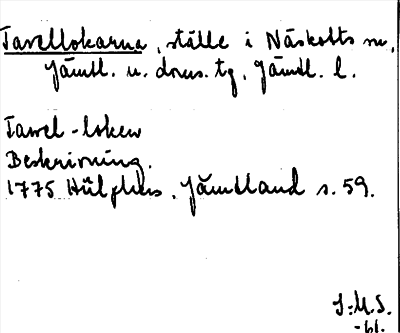 Tavellokarna, ställe i Näskotts sn,
Jämtl. n. doms. tg, Jämtl. l.
Tawel-loken
Beskrivning.
1775 Hülphers, Jämtland s. 59.
S:M.S.
-61.